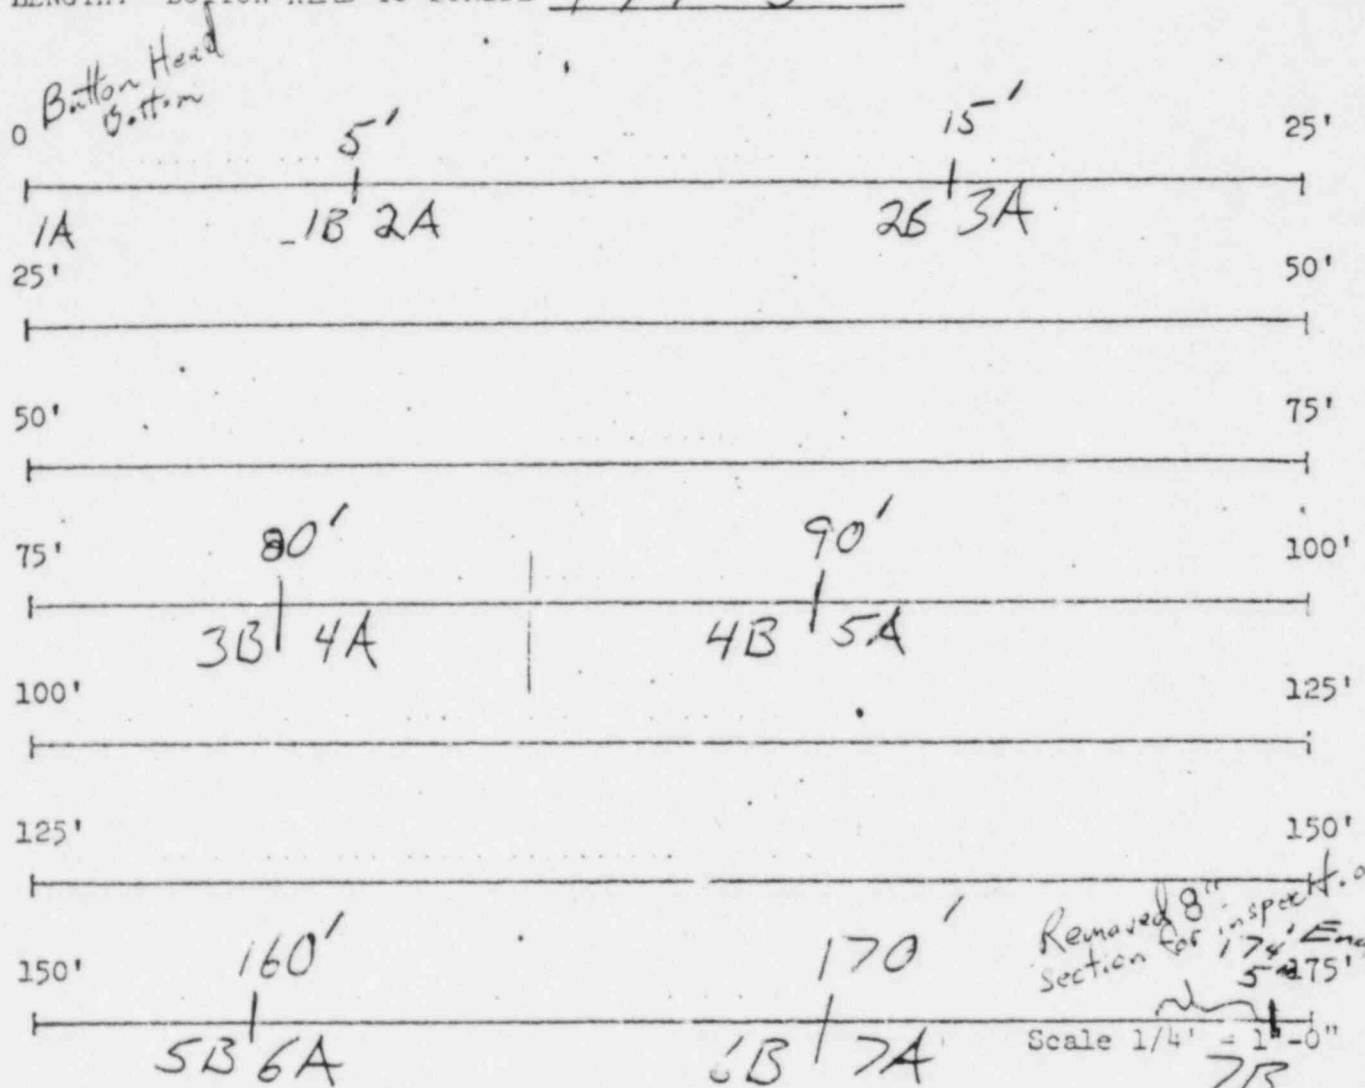 Button Head
Bottom
0 5' 15' 25'
1A 1B 2A 2B 3A
25' 50'
50' 75'
75' 80' 90' 100'
3B 4A 4B 5A
100' 125'
125' 150'
Removed 8"
section for inspection
174' End
150' 160' 170' 5" 175'
Scale 1/4' = 1'-0"
5B 6A 6B 7A 7B